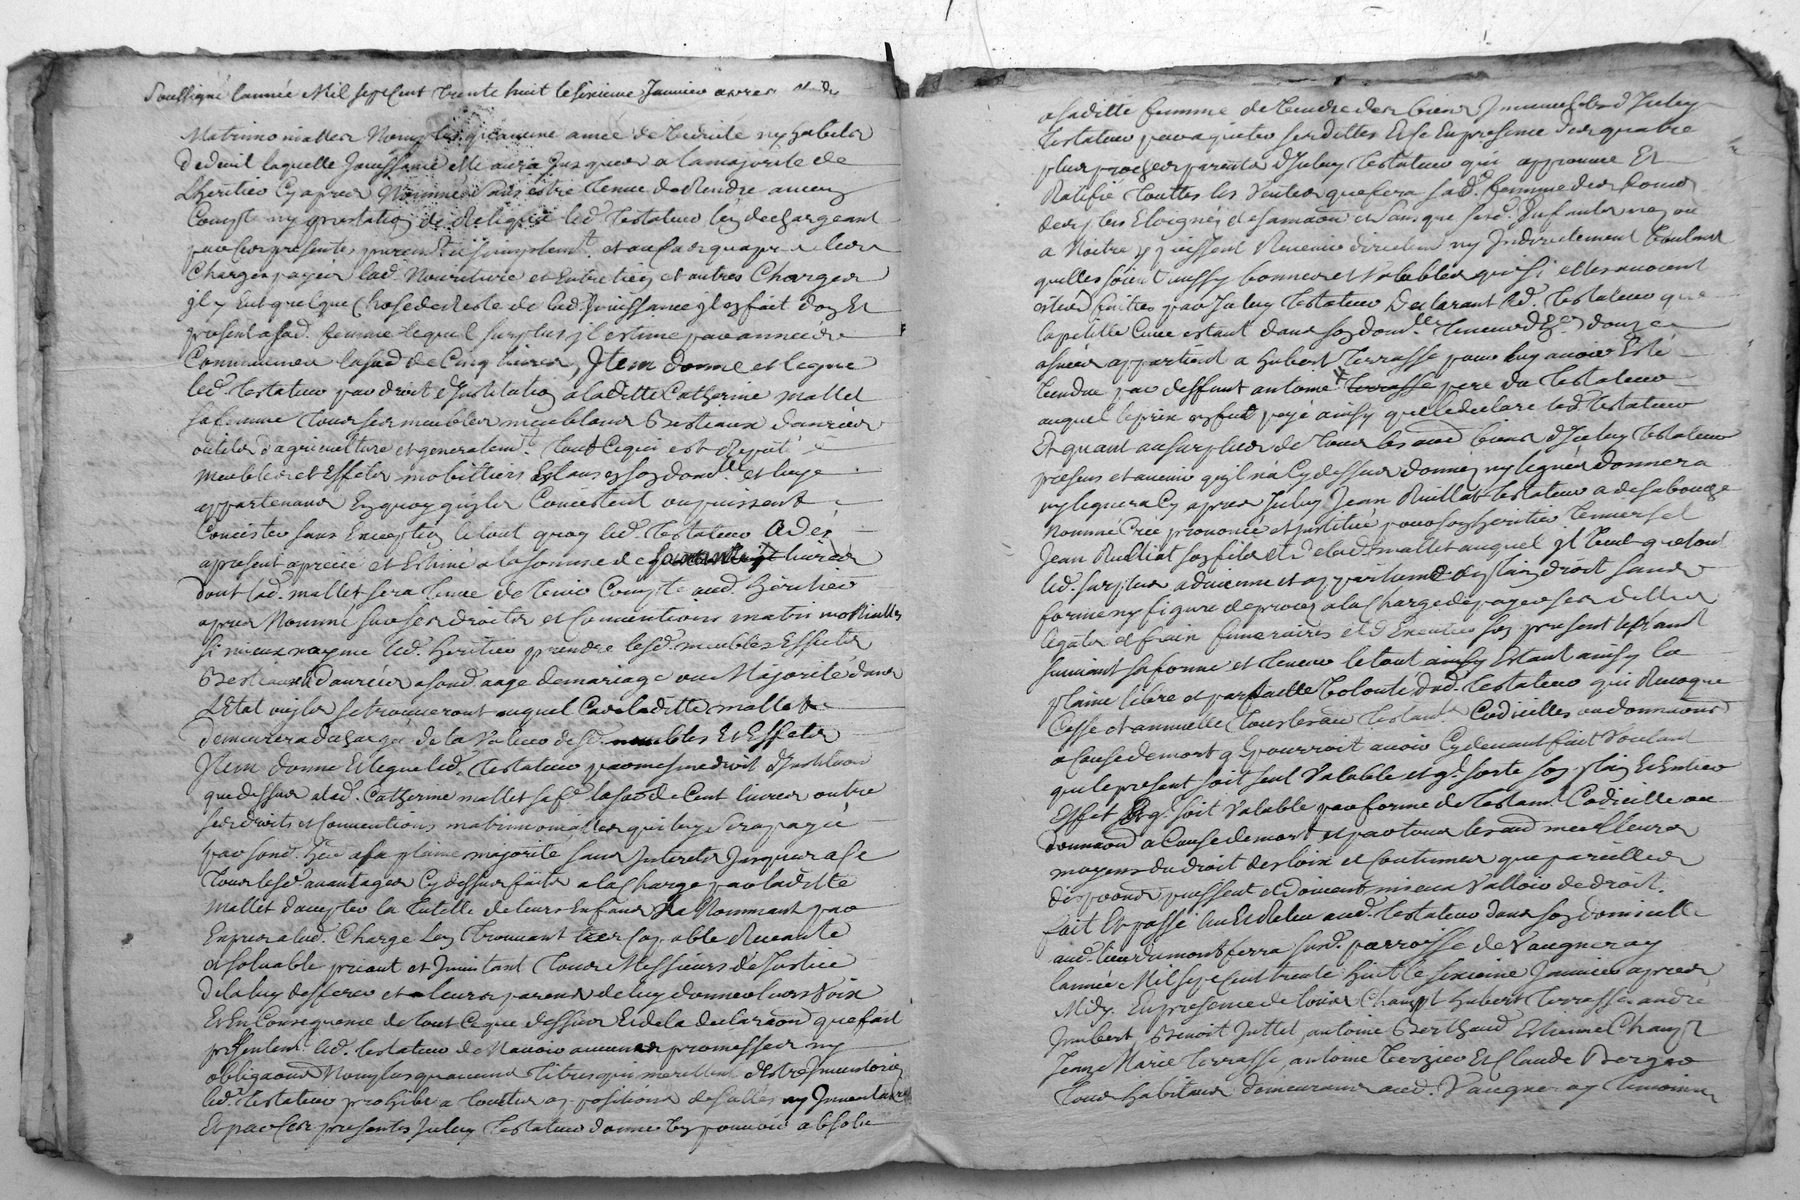 Soussigné l'année Mil sept Cent trente huit le sixieme Janvier apres
Matrimonialles Non plus qu'aucune année de viduité ny habits
de deuil laquelle Jouissance elle aura Jusques a la majorité de
L'heritier Cy apres Nommé sans estre tenue de Rendre aucun
Compte ny prestation de Reliqua led. testateur l'en dechargeant
par ces presentes purem.t et simplem.t et au Cas qu'apres les
Charges payées lad. Nouriture et Entretien et autres Charges
il y Eut quelque Chose de Reste de lad. Jouissance il en fait don Et
present a sad. femme lequel surplus il estime par année
Commune la so.e de Cinq livres, Item donne et legue
led. testateur par droit d'Institution a laditte Catherine mallet
sa femme tous ses meubles meublans Bestiaux danrées
outils d'agriculture et generalem.t tout Ce qui est Reputé
meubles et Effets mobilliers Estans en son dom.lle et luy
appartenans En quoy qu'ils Consistent ou puissent
Consister sans Exception le tout quoy led. testateur a dès
apresent aprecié et Estimé a la somme de livres
dont lad. mallet sera tenue de tenir Compte aud. heritier
apres Nommé sur ses droits et Conventions matrimonialles
si mieux n'ayme led. heritier prendre lesd. meubles Effets
Bestiaux danrées a son d. aage de mariage ou Majorité dans
L'Etat qu'ils se trouveront auquel Cas laditte mallet
demeurera dechargée de la Valeur desd. meubles Et Effets
Item donne Et legue led. testateur par mesme droit d'Institution
que dessus a lad. Catherine mallet sa fe la so.e de Cent livres outre
ses droits et Conventions matrimonialles qui luy sera payée
par son d. her. a sa plaine majorité sans Interets Jusques a Ce
tous lesd. avantages Cy dessus faits a la Charge par laditte
Mallet d'accepter la tutelle de leurs Enfans la Nommant par
Expres a lad. Charge L'en trouvant tres Capable Receante
et solvable priant et Invitant tous Messieurs de Justice
de la luy defferer et leurs parens de luy donner leurs Voix
Et En Consequence de tout Ce que dessus Et de la declaraon que fait
presentem.t led. testateur de N'avoir aucunes promesses ny
obligaons Non plus qu'aucuns titres qui meritent d'estre Inventoriés
led. testateur prohibe a toutes apositions de scellés ny Inventaire
Et par Ces presentes Iceluy testateur donne tout pouvoir absolu
a saditte femme de Vendre des biens Immeubles d'Iceluy
testateur pour aquiter ses dittes Et se En presence des quatre
plus proches parents d'Iceluy testateur qui approuve Et
Ratifie touttes les Ventes que fera sad. femme des fonds
des plus Eloignés de sa maison et sans que sesd. Enfants nés ou
a Naitre y puissent Revenir directem.t ny Indirectement Voulant
qu'elles soient aussy bonnes et Valables que si elles avoient
estées faittes par Iceluy testateur Declarant led. testateur que
la petitte Cuve estant dans son dom.lle teneur d'En.on douze
asnées appartient a hubert terrasse pour luy avoir Esté
Vendue par deffunt antoine terrasse pere du testateur
auquel le prix en fut payé ainsy que le declare led. testateur
Et quant au surplus de tous les aud. biens d'Iceluy testateur
presens et avenir qu'il n'a Cy dessus donné ny legué donnera
ny leguera Cy apres Iceluy Jean Ruillat testateur a de sa bouche
Nommé Créé prononcé et Institué pour son heritier Universel
Jean Ruilliat son fils et de lad. mallet auquel il Veut que tout
led. surplus advienne et appartienne de plain droit sans
forme ny figure de proces a la Charge de payer ses dettes
legats et frais funeraires et d'Executer son present testament
suivant sa forme et teneur le tout ainsy Estant ainsy la
plaine libre et parfaitte Volonté dud. testateur qui Revoque
Casse et annulle tous les au.e testam.t Codicilles ou donnaons
a Cause de mort q. pourroit avoir Cy devant fait Voulant
que le present soit seul Valable et q. sorte son plain Et Entier
Effet Et q. soit Valable par forme de testam.t Codicille ou
donnaon a Cause de mort et par tous les aud. meilleurs
moyens du droit des loix et Coutumes que pareilles
dispoons puissent et doivent mieux Valloir de droit.
fait Et passé leu Et Releu aud. testateur dans son domicille
aud. lieu du mont ferra sud. parroisse de Vaugneray
l'année Mil sept Cent trente huit le sixieme Janvier apres
Midy. En presence de Louis Champt hubert terrasse andré
Jmbert Benoit Juttet antoine Berthaud Etienne Champt
Jean Marie terrasse antoine terzier Et Claude Berger
tous habitans demeurans aud. Vaugneray temoins